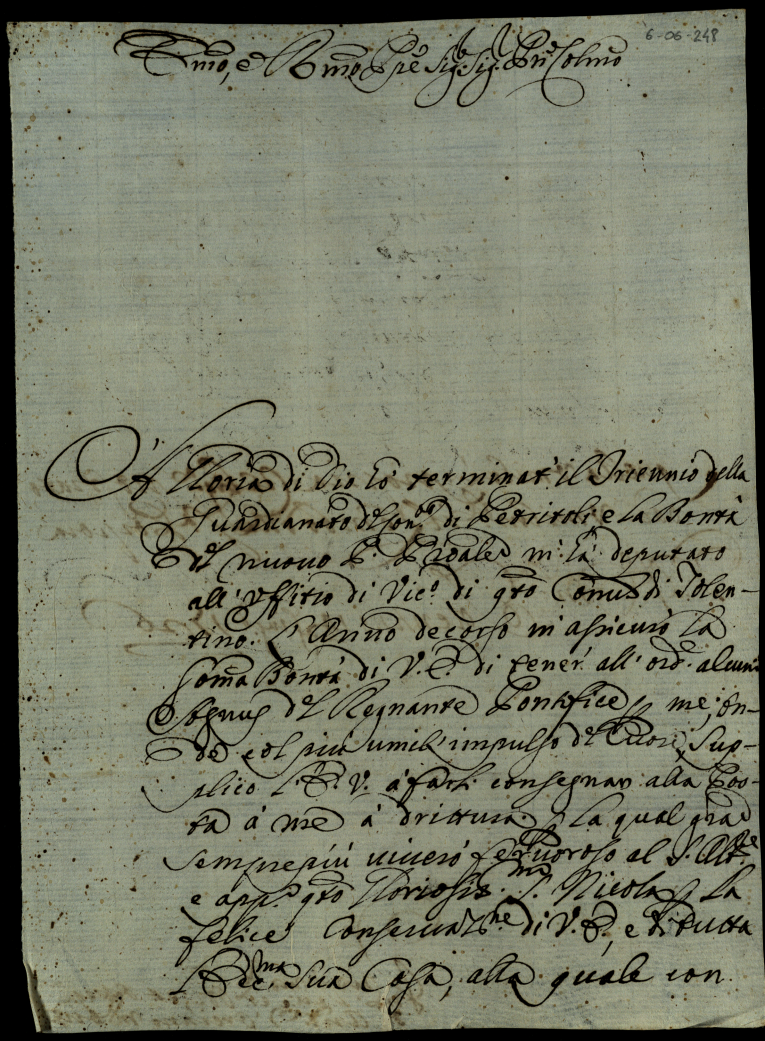 6-06-248
Emo, e Rmo Pre Sig. Sig. Prn Colmo
A Gloria di Dio hò terminat' il Triennio della
Guardianato del Con.to di Petritoli e la Bontà
del nuovo P. Pñale m' hà deputato
all' Uffitio di Vic.o di qto Conv. di Tolen-
tino. L'Anno decorso m' assicurò la
somã Bontà di V. E. di tener' all' ord.e alcuni
Agnus del Regnante Pontefice p me; on-
de col più umil' impulso del Cuore, sup-
plico l' E. V. à farli consegnar alla Pos-
ta à me à drittura. p la qual gra
sempre più viverò fervoroso al S. Alt.re
e app.o qto Gloriosis.mo S. Nicola p la
felice Conservat.ne di V. E., e di tutta
l' Ecc.ma sua Casa, alla quale con